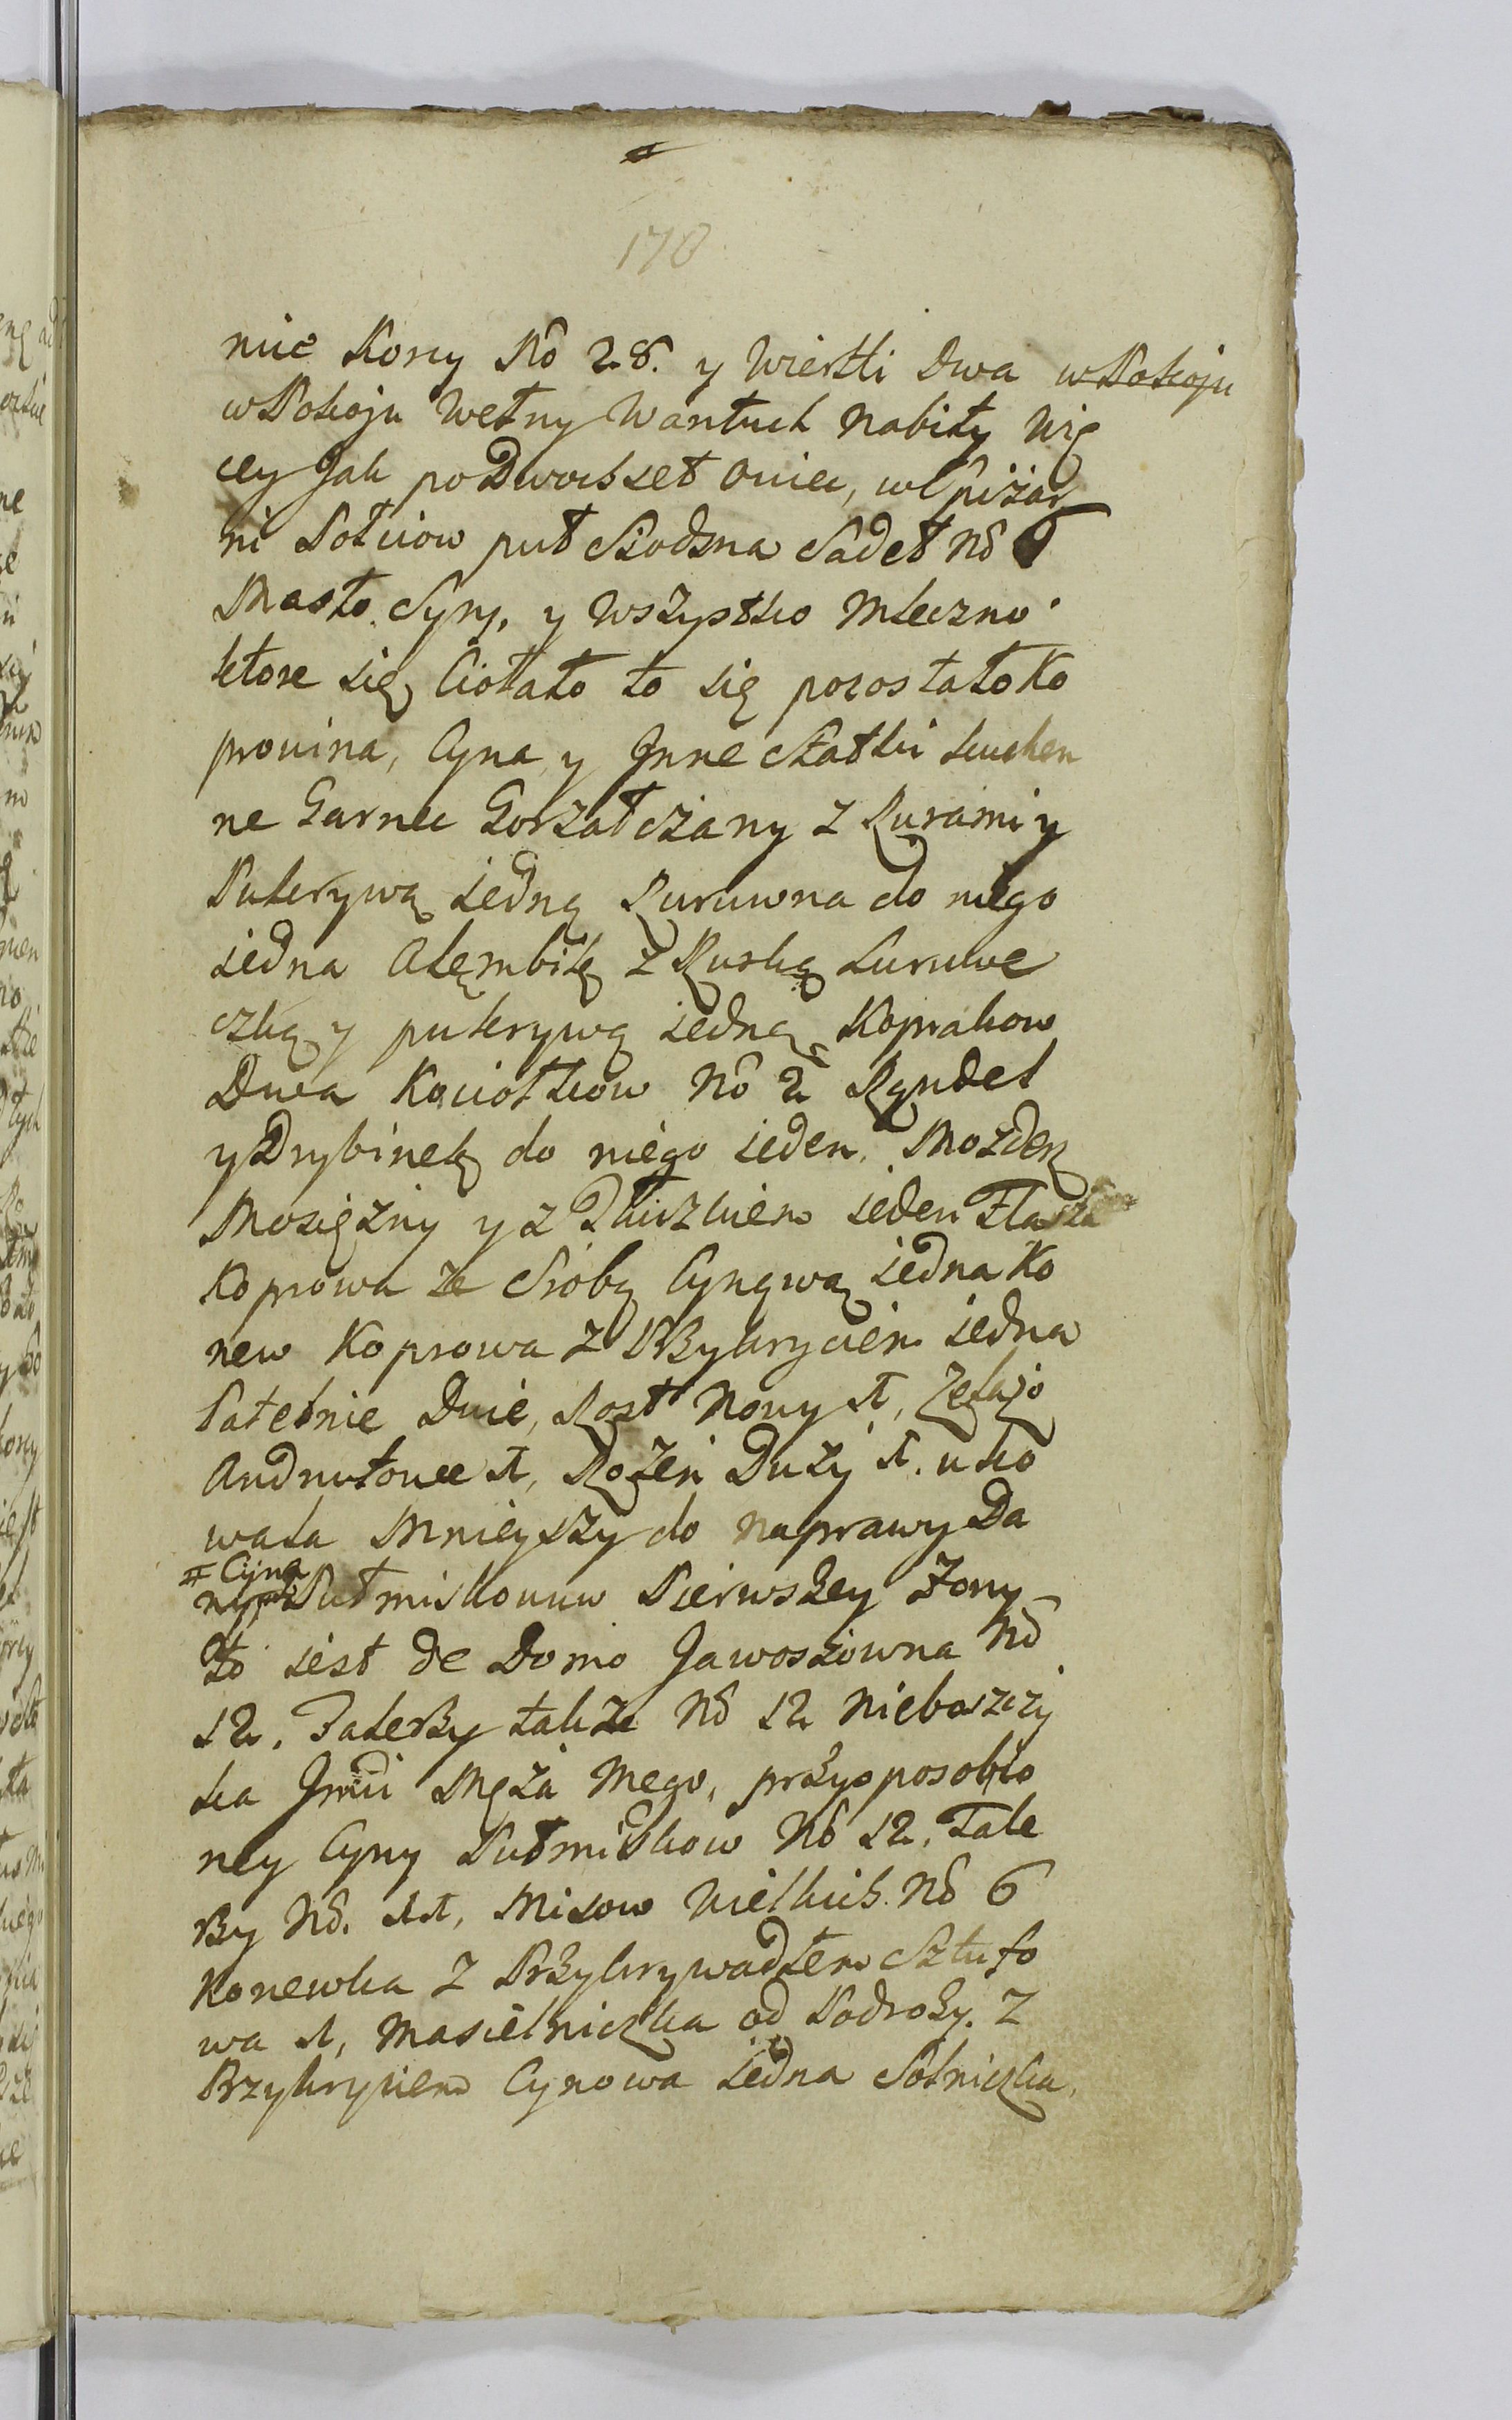 178
nic Korcy No 28. y Wiertli Dwa w Pokoju
w Pokoju Wełny Wantuch Nabity Wię
cey Jak po Dwochset Owiec, w Spiżar
ni Połciow puł Siodma Sadeł No 6
Masło. Syry, y wszystko Mleczno
ktore się Ciołało to się pozostało Ko
prowina, Cyna y Jnne Statki kuchen
ne Garnec Gorzałczany z Rurami y
Pukrywą iedną Ruruwna do niego
iedna Alembik z Rurką Suruwe
czką y pukrywą iedną Koprakow
Dwa Kociołkow No 2 Ryndel
y Drybinek do niego ieden. Mozderz
Mosiężny y z Tłuczkiem ieden Flasza
Koprowa ze Srobą Cynową iedna Ko
new Koprowa z Przykryciem iedna
Patelnie Dwie, Rost Nowy 1, Zelazo
Andrutowe 1, Rożen Duży 1. u ko
wala Mnieyszy do naprawy Da
ny # Cyna Pułmiskowuw Pierwszey Zony
to iest de Domo Jawoszowna No
12. Talerzy także No 12 Nieboszczy
ka Jmci Męża Mego, przysposobio
ney Cyny Pułmiskow No 12. Tale
rzy No. 11, Misow Wielkich No 6
Konewka z Przykrywadłem Sztufo
wa 1, Masielniczka od Podroży. z
Przykryciem Cynowa iedna Solniczka,